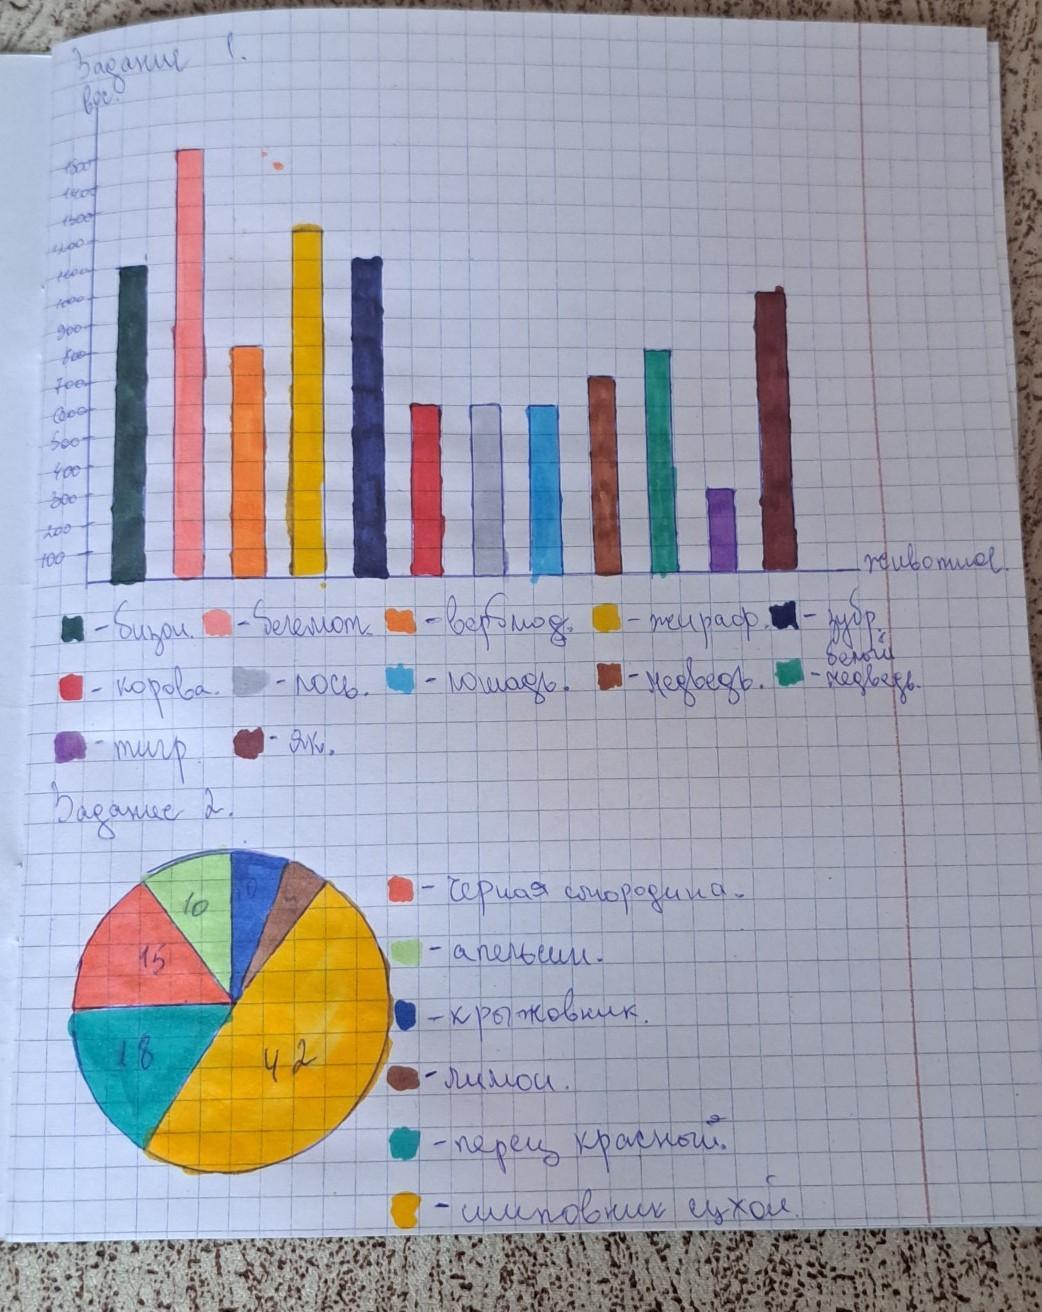 Задание 1.
вес.
1500
1400
1300
1200
1100
1000
900
800
700
600
500
400
300
200
100
животное.
- бизон. - бегемот. - верблюд. - жираф. - зубр.
- корова. - лось. - лошадь. - медведь. - белый медведь.
- тигр. - як.
Задание 2.
10
15
18
42
- черная смородина.
- апельсин.
- крыжовник.
- лимон.
- перец красный.
- шиповник сухой.